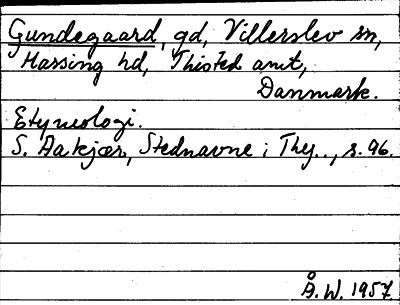 Gundegaard, gd, Villerslev sn,
Hassing hd, Thisted amt,
Danmark.
Etymologi.
S. Aakjær, Stednavne i Thy.., s. 96.
Å. W. 1957